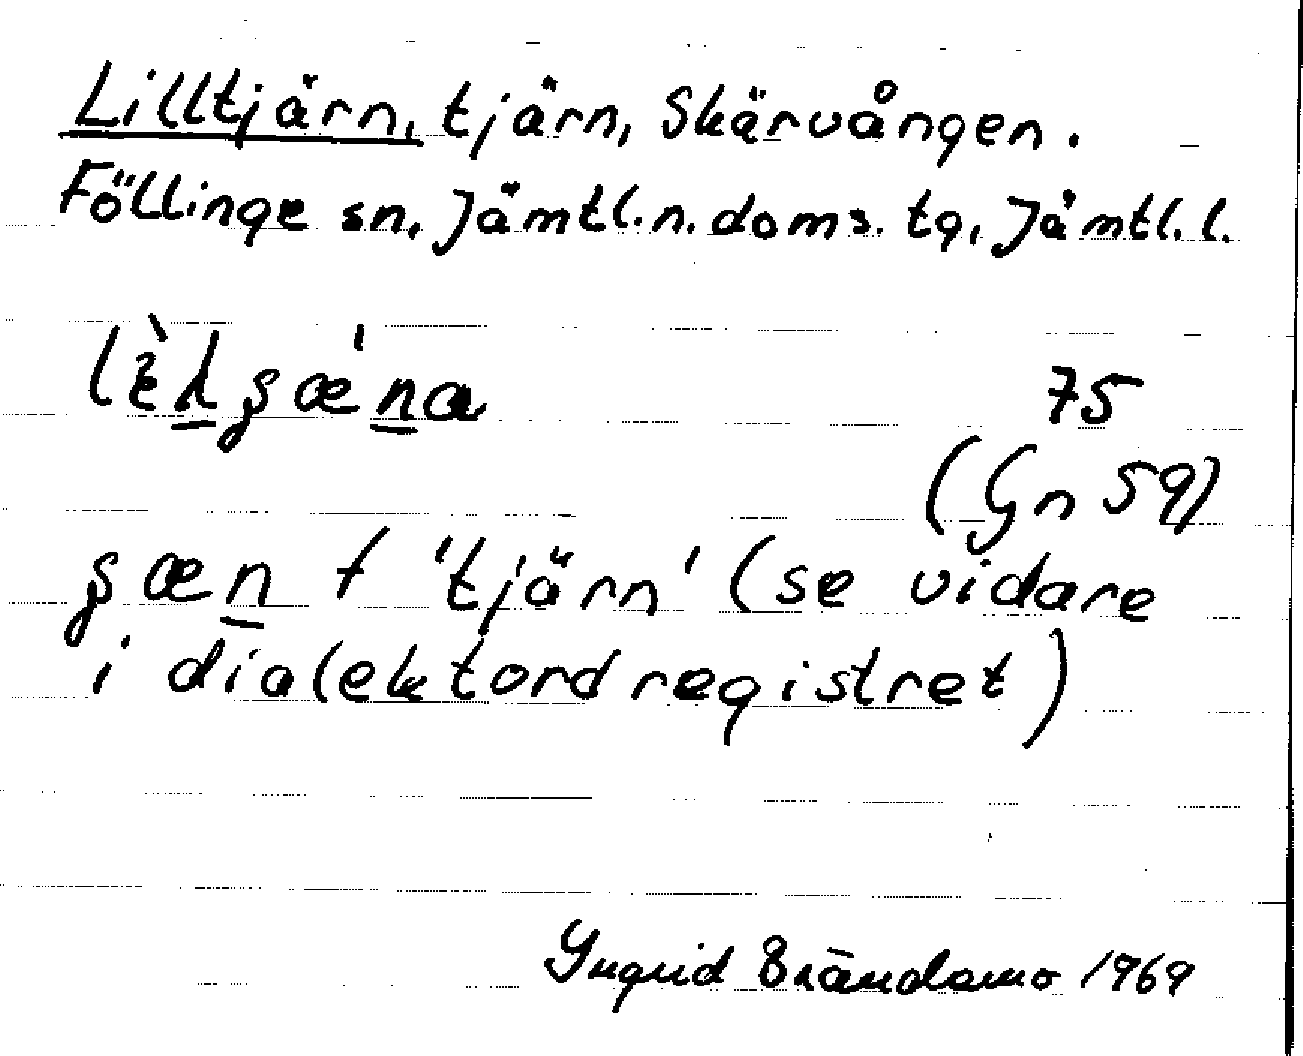 Lilltjärn, tjärn, Skärvången.
Föllinge sn, Jämtl.n.doms. tg, Jämtl.l.
75
(Gn 59)
f 'tjärn' (se vidare
i dialektordregistret)
Yngrid Brändamo 1969